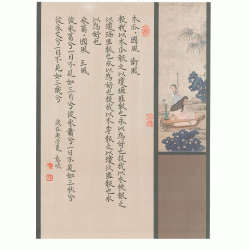 木瓜·國風 衛風
投我以木瓜報之以瓊琚匪報也永以為好也投我以木桃報之
以瓊瑤匪報也永以為好也投我以木李報之以瓊玖匪報也永
以為好也
采葛·國風 王風
彼采葛兮一日不見如三月兮彼采蕭兮一日不見如三秋兮
彼采艾兮一日不見如三歲兮
歲在庚子夏